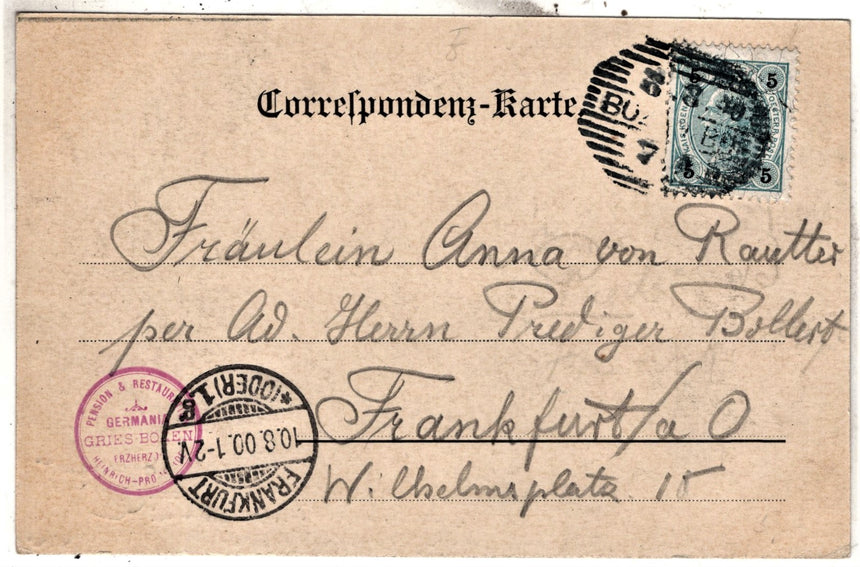 Correspondenz-Karte
5
5 5
Fräulein Anna von Rautter
per Ad. Herrn Prediger Bollert
Frankfurt/a O
Wilhelmsplatz 15
PENSION & RESTAUR
GERMANIA
GRIES-BOZEN
ERZHERZ
HEINRICH-PRO
FRANKFURT
10.8.00.1-2V.
*(ODER)1.g
BOZ